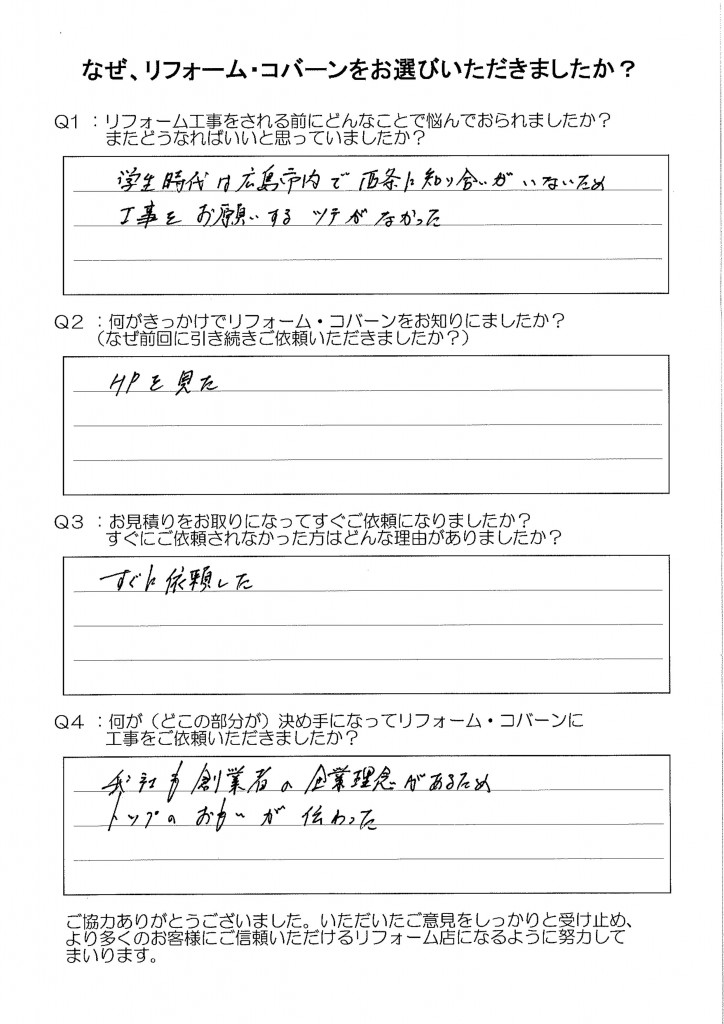 なぜ、リフォーム・コバーンをお選びいただきましたか?
Q1 :リフォーム工事をされる前にどんなことで悩んでおられましたか?
またどうなればいいと思っていましたか?
学生時代は広島市内で西条に知り合いがいないため
工事をお願いするツテがなかった
Q2 :何がきっかけでリフォーム・コバーンをお知りにましたか?
(なぜ前回に引き続きご依頼いただきましたか?)
HPを見た
Q3 :お見積りをお取りになってすぐご依頼になりましたか?
すぐにご依頼されなかった方はどんな理由がありましたか?
すぐに依頼した
Q4 :何が(どこの部分が)決め手になってリフォーム・コバーンに
工事をご依頼いただきましたか?
我社も創業者の企業理念があるため
トップのおもいが伝わった
ご協力ありがとうございました。いただいたご意見をしっかりと受け止め、
より多くのお客様にご信頼いただけるリフォーム店になるように努力して
まいります。